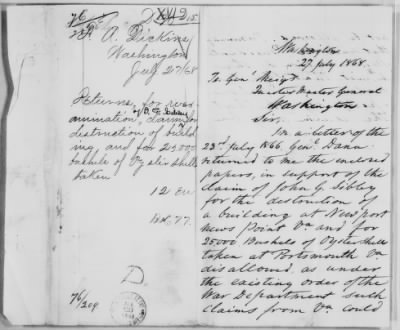 A. Dickins
Washington
July 27/68
Returns, for re-ex-
amination, claim, for
destruction of build-
ing, and for 25000
bushels of Oyster shells
taken
12 En
D
76/209
Washington
27 July 1868
To Genl. Meigs
Quarter Master General
Washington
Sir,
In a letter of the
23d July 1866, Genl. Dana
returned to me the enclosed
papers, in support of the
claim of John G. Sibley
for the destruction of
a building at Newport
news Point Va and for
25000 Bushels of Oyster shells
taken at Portsmouth Va
disallowed, as under
the existing order of the
War Department such
claims from Va could